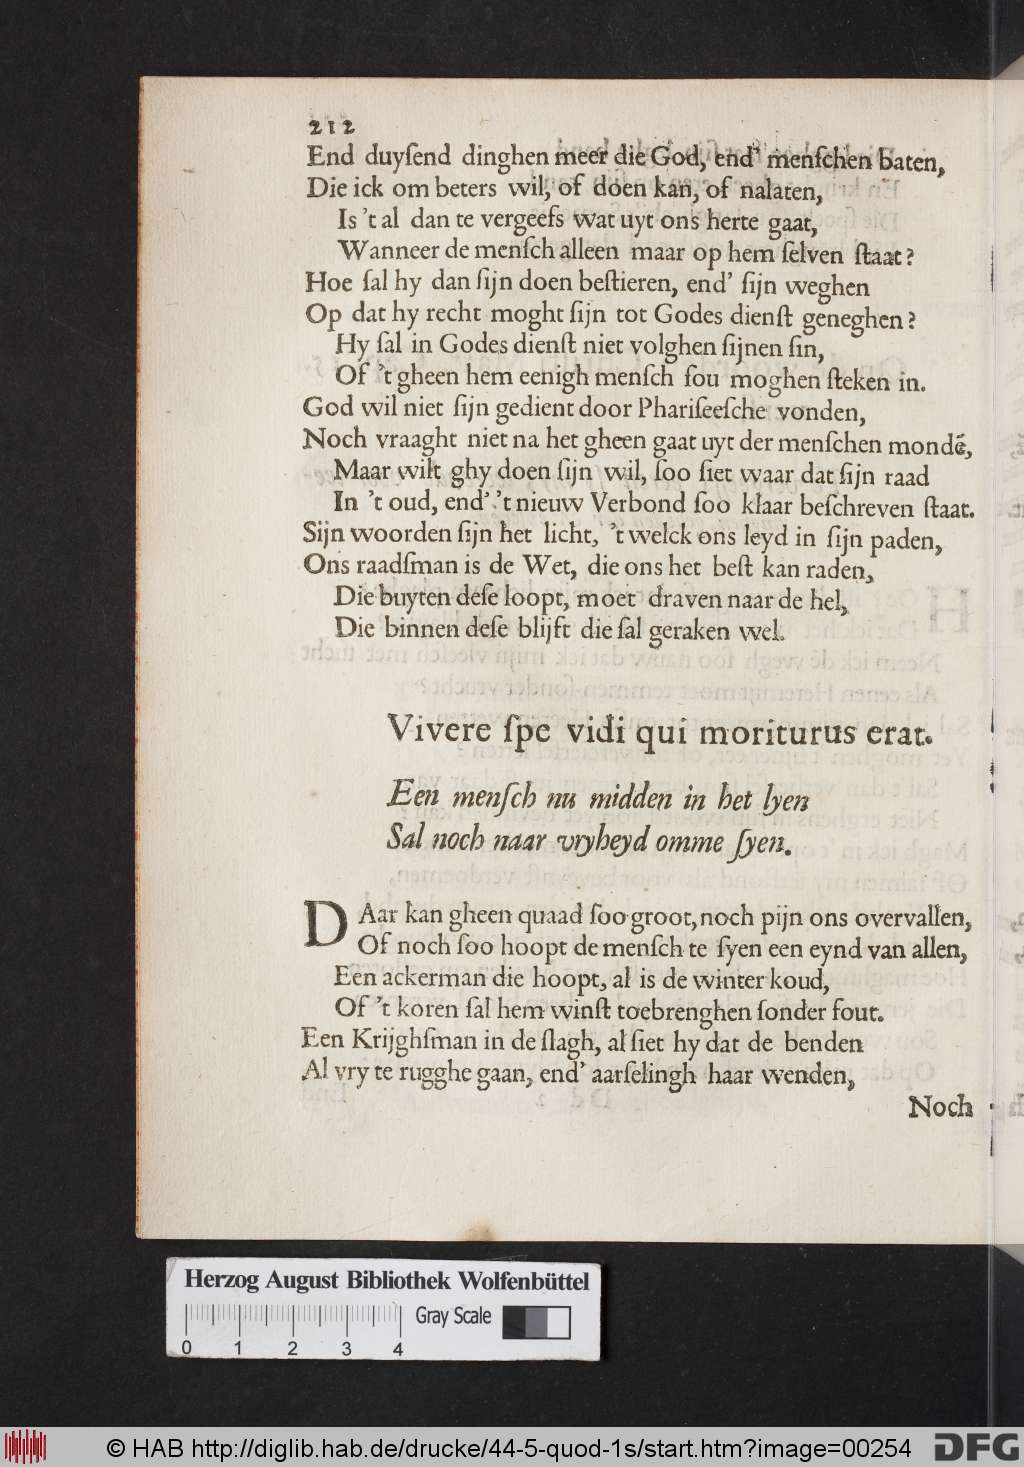 212
End duyſend dinghen meer die God, end' menſchen baten,
Die ick om beters wil, of doen kan, of nalaten,
Is 't al dan te vergeefs wat uyt ons herte gaat,
Wanneer de menſch alleen maar op hem ſelven ſtaat?
Hoe ſal hy dan ſijn doen beſtieren, end' ſijn weghen
Op dat hy recht moght ſijn tot Godes dienſt geneghen?
Hy ſal in Godes dienſt niet volghen ſijnen ſin,
Of 't gheen hem eenigh menſch ſou moghen ſteken in.
God wil niet ſijn gedient door Phariſeeſche vonden,
Noch vraaght niet na het gheen gaat uyt der menſchen mondē,
Maar wilt ghy doen ſijn wil, ſoo ſiet waar dat ſijn raad
In 't oud, end' 't nieuw Verbond ſoo klaar beſchreven ſtaat.
Sijn woorden ſijn het licht, 't welck ons leyd in ſijn paden,
Ons raadſman is de Wet, die ons het beſt kan raden,
Die buyten deſe loopt, moet draven naar de hel,
Die binnen deſe blijft die ſal geraken wel.
Vivere ſpe vidi qui moriturus erat.
Een menſch nu midden in het lyen
Sal noch naar vryheyd omme ſyen.
DAar kan gheen quaad ſoo groot, noch pijn ons overvallen,
Of noch ſoo hoopt de menſch te ſyen een eynd van allen,
Een ackerman die hoopt, al is de winter koud,
Of 't koren ſal hem winſt toebrenghen ſonder fout.
Een Krijghſman in de ſlagh, al ſiet hy dat de benden
Al vry te rugghe gaan, end' aarſelingh haar wenden,
Noch
Herzog August Bibliothek Wolfenbüttel
Gray Scale
0 1 2 3 4
© HAB http://diglib.hab.de/drucke/44-5-quod-1s/start.htm?image=00254
DFG